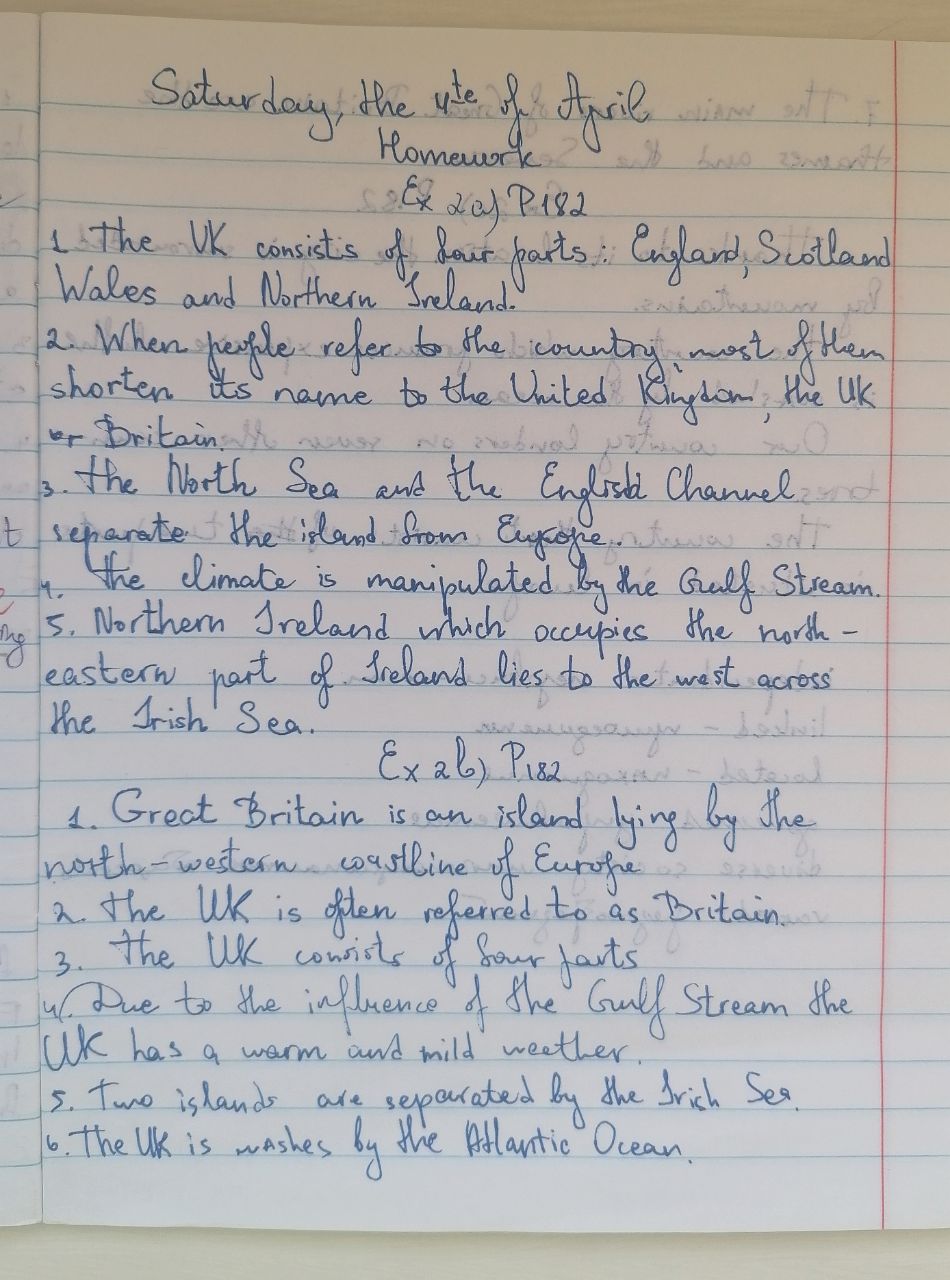 Saturday, the 4te of April
Homework
Ex 2a) P.182
1 The UK consists of four parts: England, Scotland
Wales and Northern Ireland.
2. When people refer to the country, most of them
shorten its name to the United Kingdom, the UK
or Britain.
3. the North Sea and the English Channel
separate the island from Europe.
4. the climate is manipulated by the Gulf Stream.
5. Northern Ireland which occupies the north-
eastern part of Ireland lies to the west across
the Irish Sea.
Ex 2b) P182
1. Great Britain is an island lying by the
north-western coastline of Europe
2. the UK is often referred to as Britain.
3. the UK consists of four parts
4. Due to the influence of the Gulf Stream the
UK has a warm and mild weether.
5. Two islands are separated by the Irish Sea.
6. The UK is washes by the Atlantic Ocean.